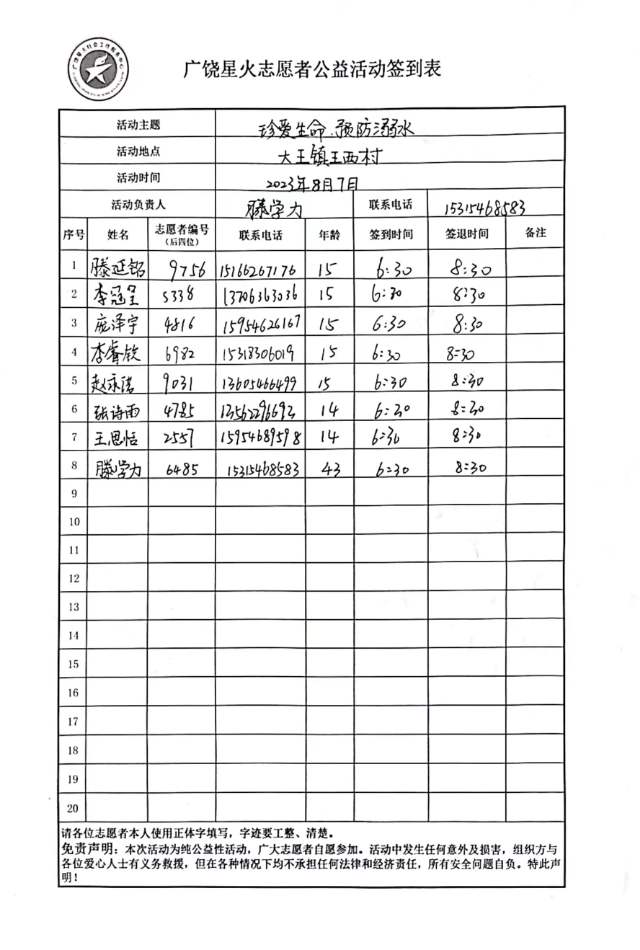 广饶星火志愿者公益活动签到表
活动主题 珍爱生命.预防溺水
活动地点 大王镇王西村
活动时间 2023年8月7日
活动负责人 滕学力 联系电话 15315468583
序号 姓名 志愿者编号（后四位） 联系电话 年龄 签到时间 签退时间 备注
1 滕延铭 9756 15166267176 15 6:30 8:30
2 李冠呈 5338 13706363036 15 6:30 8:30
3 庞泽宇 4816 15954626167 15 6:30 8:30
4 李睿钦 6982 15318306019 15 6:30 8:30
5 赵 9031 13605466499 15 6:30 8:30
6 张诗雨 4785 13562296693 14 6:30 8:30
7 王思恬 2557 15954689598 14 6:30 8:30
8 滕学力 6485 15315468583 43 6:30 8:30
9
10
11
12
13
14
15
16
17
18
19
20
请各位志愿者本人使用正体字填写，字迹要工整、清楚。
免责声明：本次活动为纯公益性活动，广大志愿者自愿参加。活动中发生任何意外及损害，组织方与
各位爱心人士有义务救援，但在各种情况下均不承担任何法律和经济责任，所有安全问题自负。特此声
明！